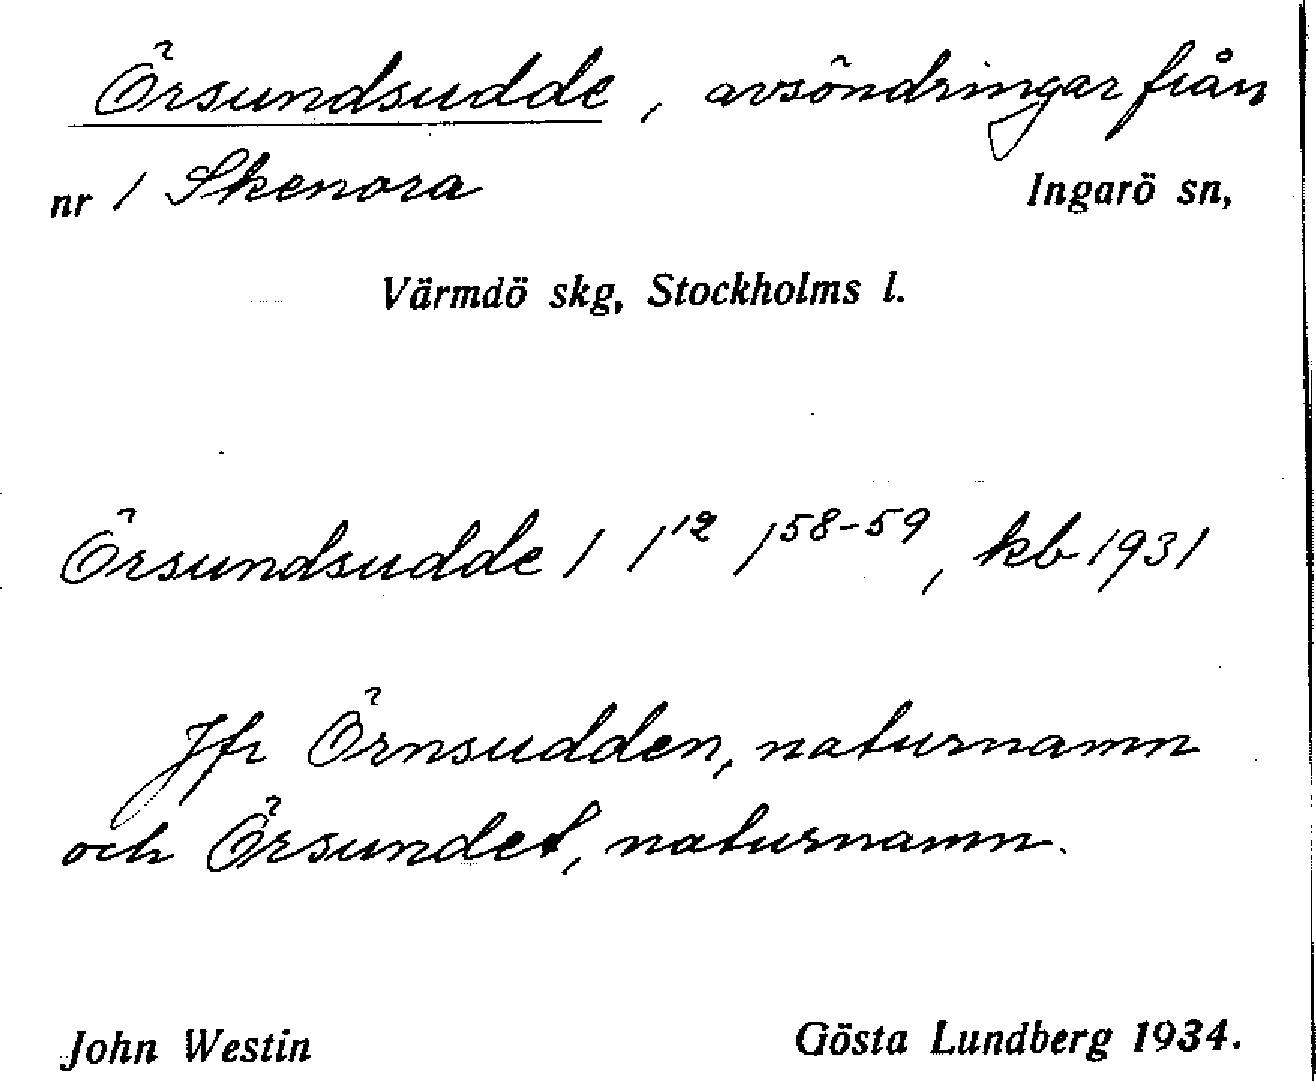 Örsundsudde, avsöndringar från
nr 1 Skenora Ingarö sn,
Värmdö skg, Stockholms l.
Örsundsudde 1 1¹² 1⁵⁸⁻⁵⁹, kb 1931
Jfr Örnsudden, naturnamn
och Örsundet, naturnamn.
John Westin Gösta Lundberg 1934.